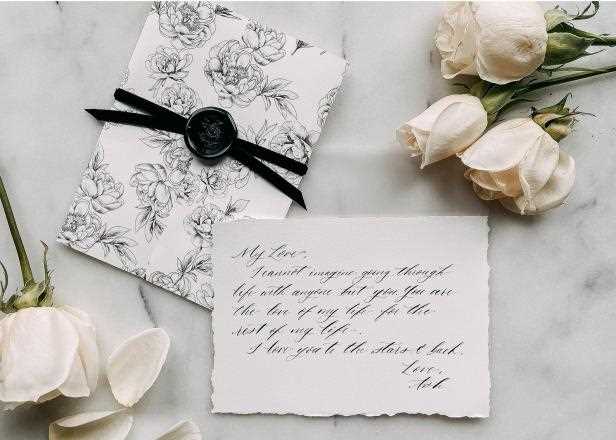 My Love,
I cannot imagine going through
life with anyone but you. You are
the love of my life for the
rest of my life.
I love you to the stars & back.
Love,